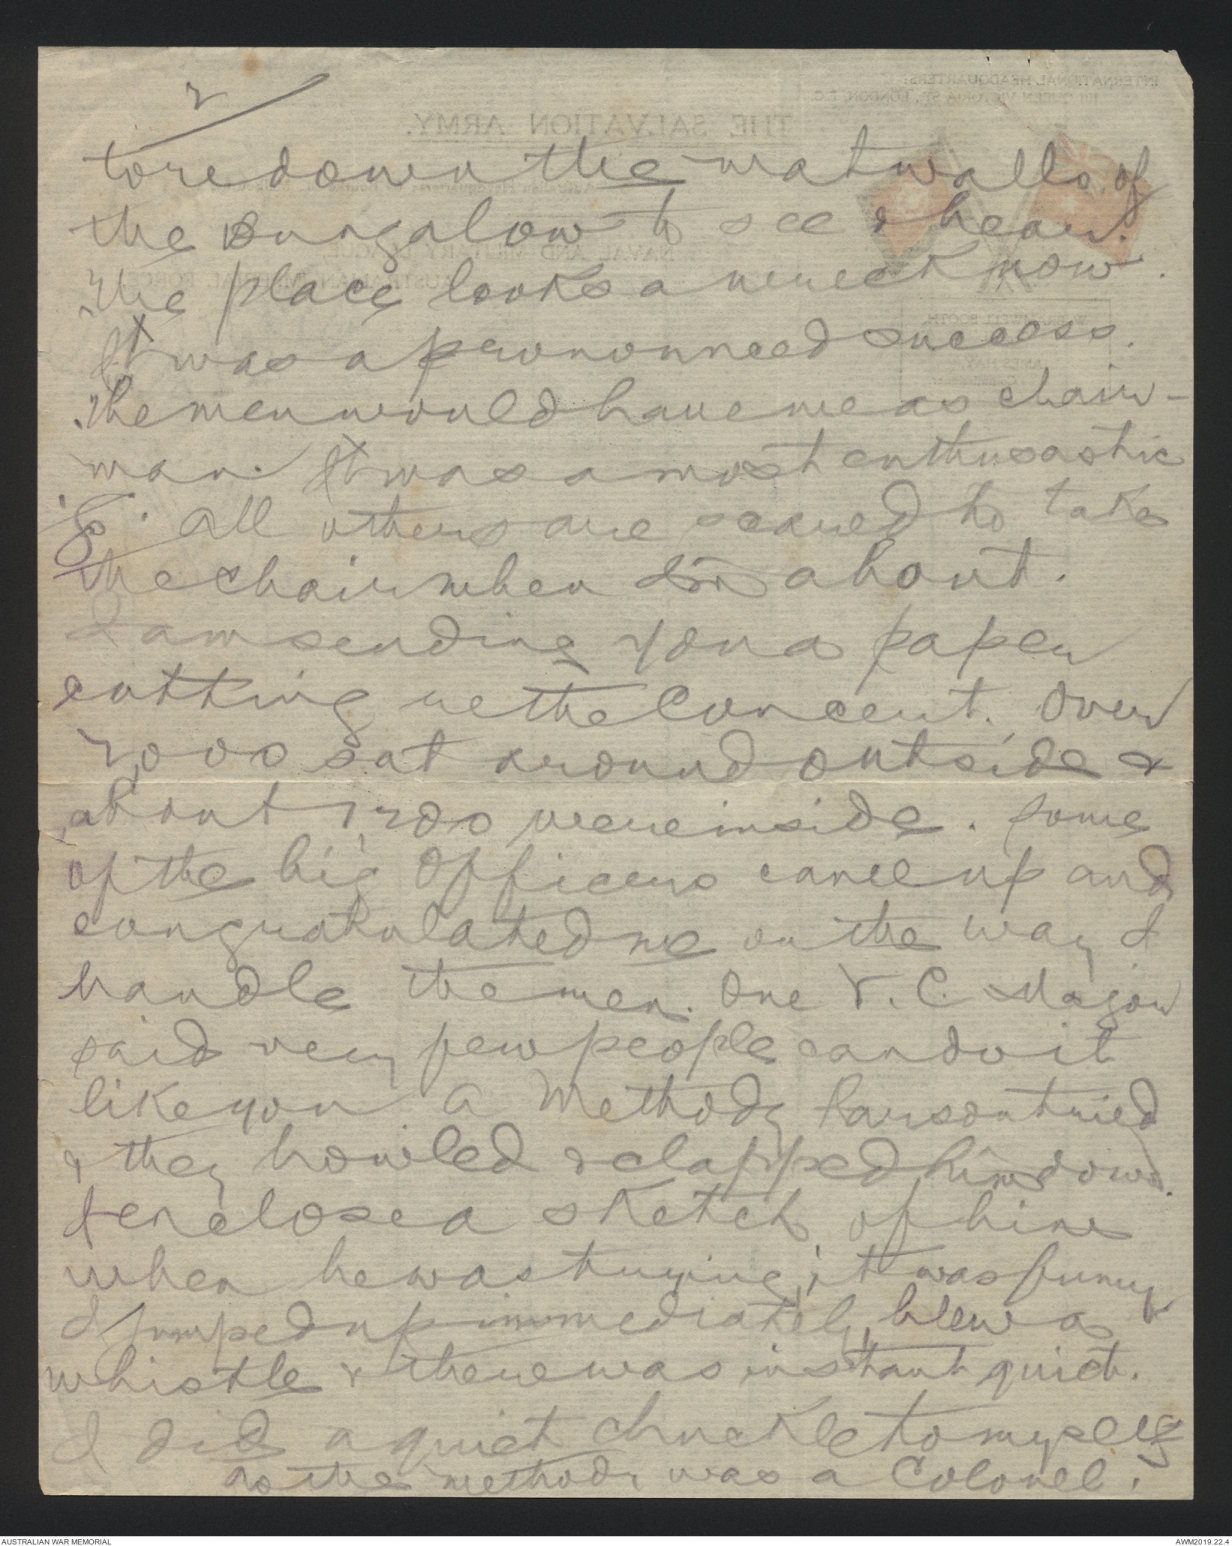 2
tore down the mat walls of
the Bungalow to see & hear.
The place looks a wreck now.
It was a pronounced success.
The men would have me as chair-
man. It was a most enthusastic
"go". All others are scared to take
the chair when I'm about.
I am sending you a paper
cutting re the Concert. Over
2000 sat around outside &
about 1200 were inside. Some
of the big Officers came up and
congratulated me on the way I
handle the men. One V.C. Major
said very few people can do it
like you. A Methody Parson tried
& they howled & clapped him down.
I enclose a sketch of him
when he was trying, it was funny
I jumped up immediately, blew a
whistle & there was instant quiet.
I did a quiet chuckle to myself
as the methody was a Colonel.
INTERNATIONAL HEADQUARTERS:
101 QUEEN VICTORIA ST., LONDON, E.C.
THE SALVATION ARMY.
NAVAL AND MILITARY LEAGUE
AUSTRALIAN WAR MEMORIAL
AWM2019.22.4